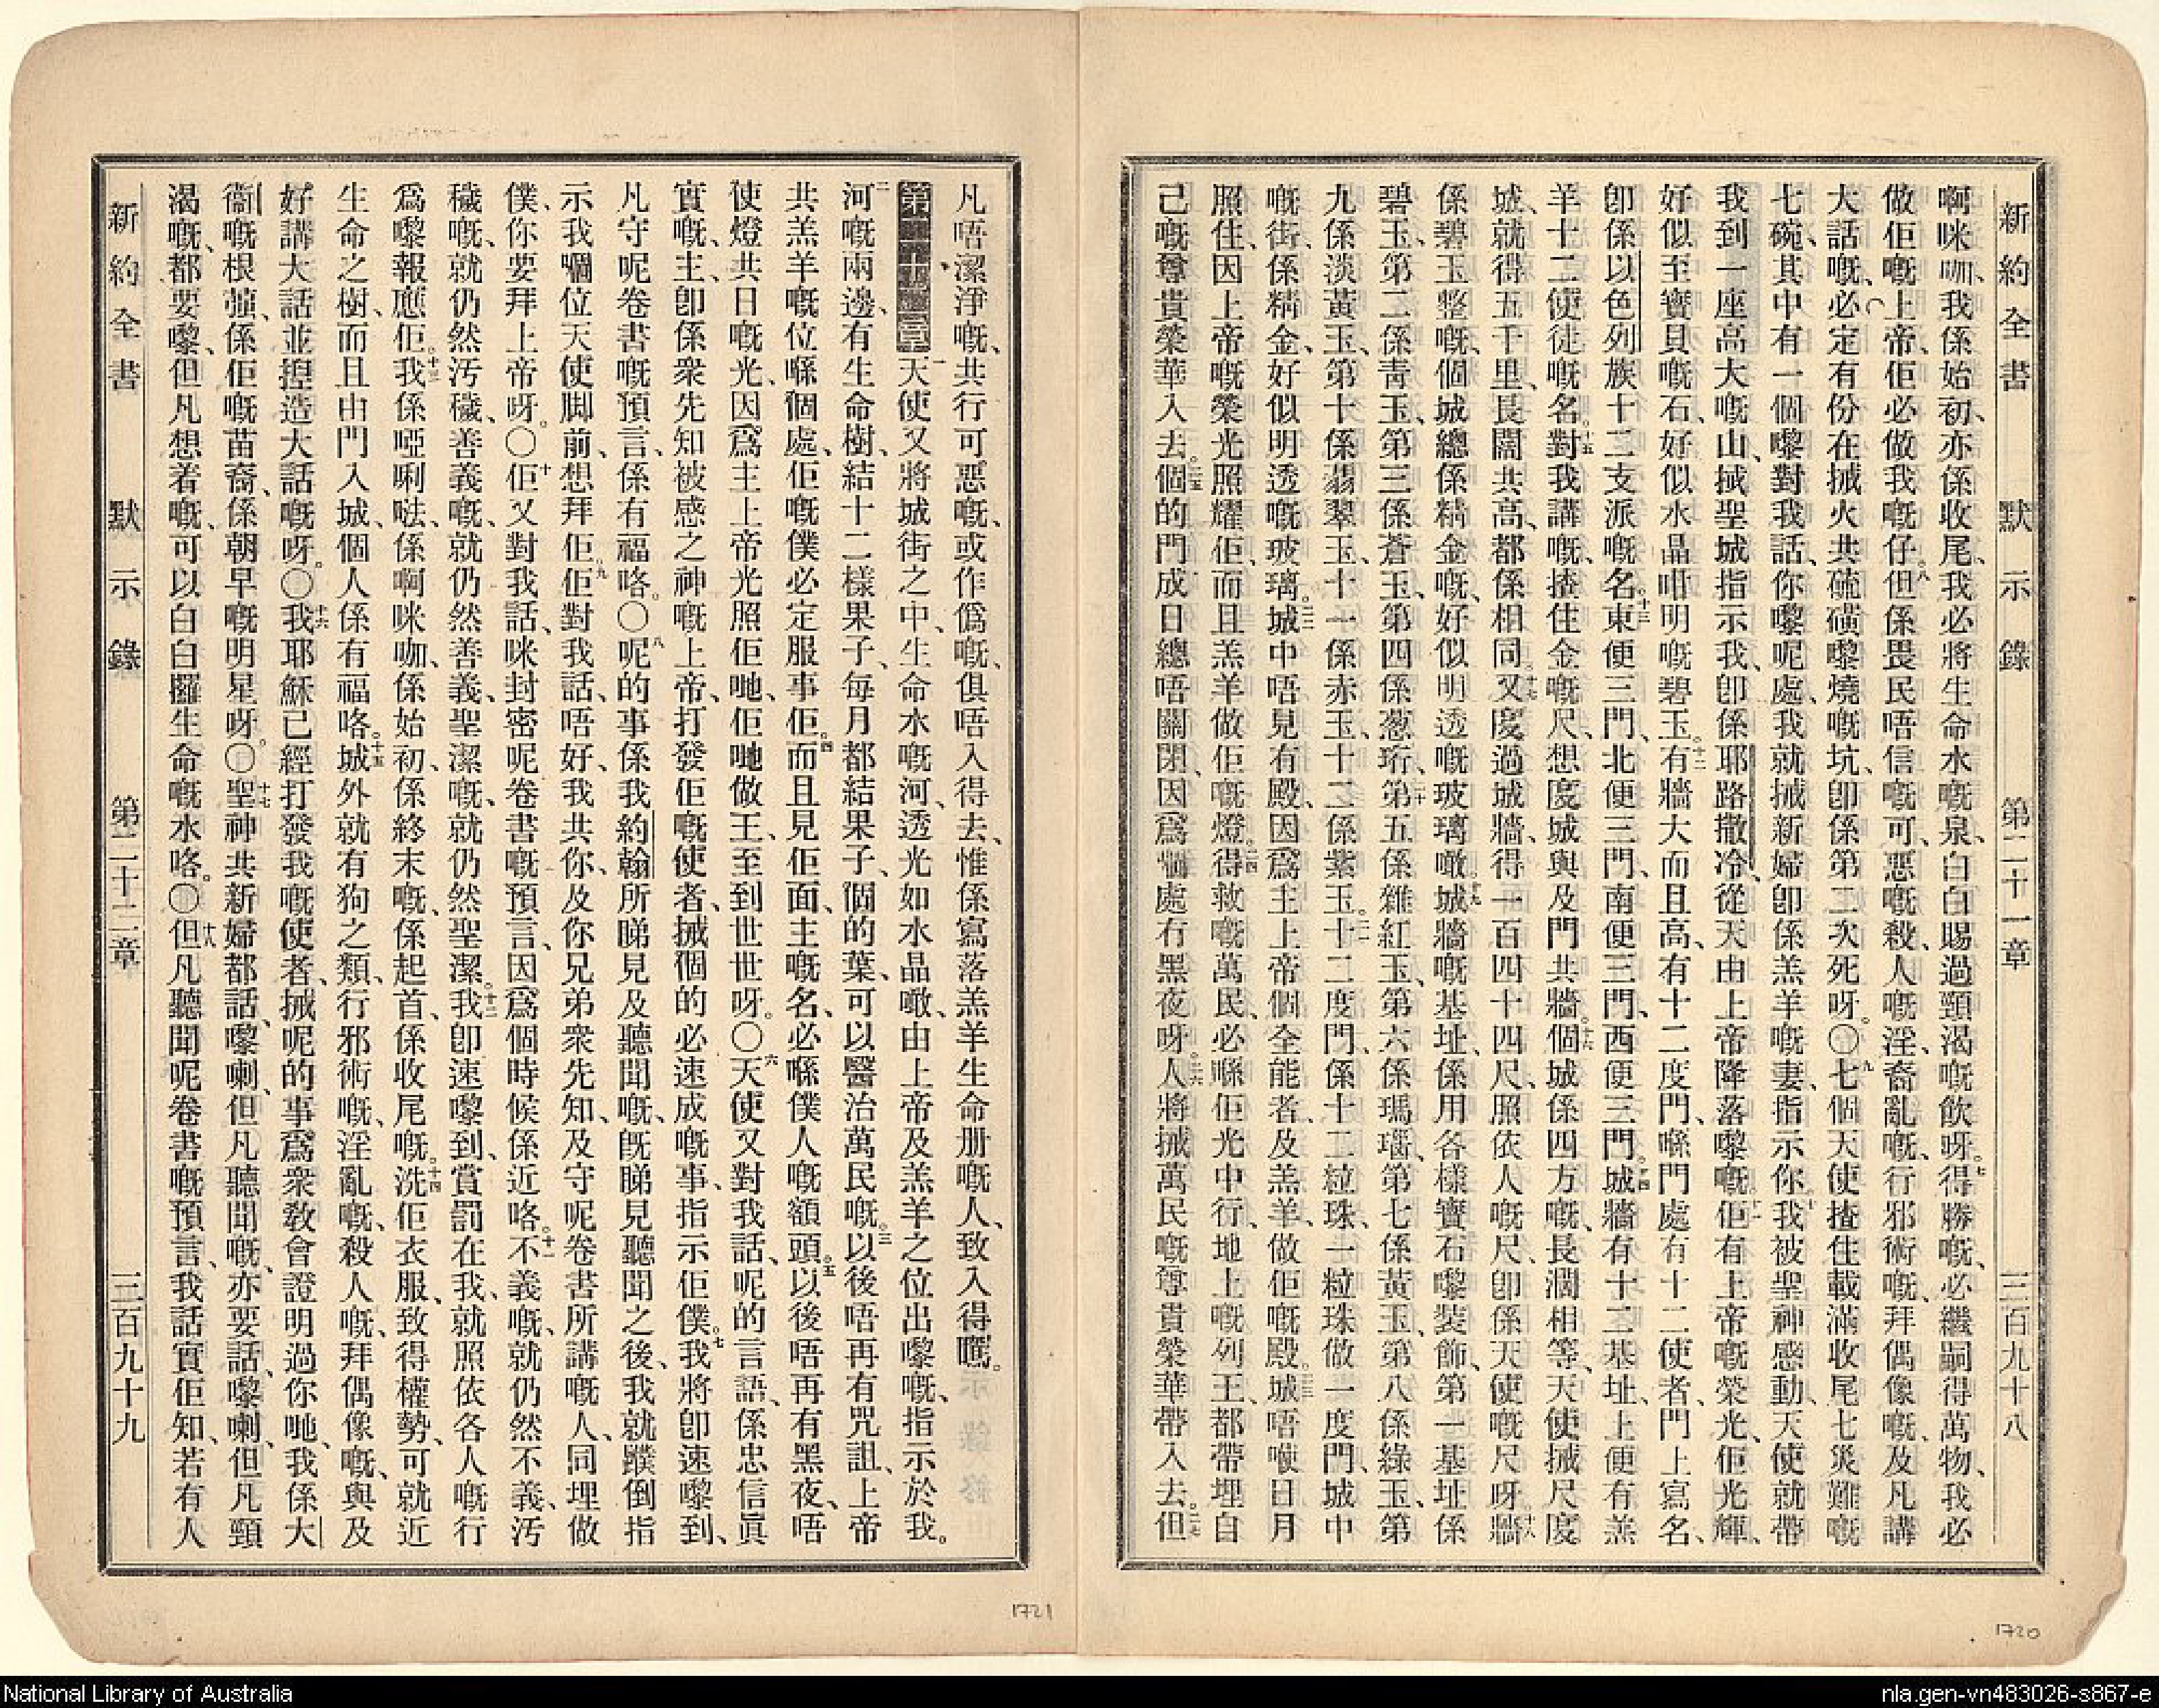 新約全書 默示錄 第二十一章 三百九十八
啊咪咖、我係始初、亦係收尾、我必將生命水嘅泉、白白賜過頸渴嘅飲呀。七得勝嘅、必繼嗣得萬物、我必
做佢嘅上帝、佢必做我嘅仔。八但係畏民唔信嘅、可惡嘅、殺人嘅、淫亂嘅、行邪術嘅、拜偶像嘅、及凡講
大話嘅、必定有份在搣火共硫磺嚟燒嘅坑、卽係第二次死呀。〇九七個天使揸住載滿收尾七災難嘅
七碗、其中有一個嚟對我話、你嚟呢處、我就搣新婦卽係羔羊嘅妻、指示你。十我被聖神感動、天使就帶
我到一座高大嘅山、搣聖城指示我、卽係耶路撒冷、從天由上帝降落嚟嘅、十一佢有上帝嘅榮光、佢光輝、
好似至寶貝嘅石、好似水晶咁明嘅碧玉。十二有牆大而且高、有十二度門、喺門處有十二使者、門上寫名、
卽係以色列族十二支派嘅名。十三東便三門、北便三門、南便三門、西便三門。十四城牆有十二基址、上便有羔
羊十二使徒嘅名。十五對我講嘅、揸住金嘅尺、想度城與及門共牆。十六個城係四方嘅、長濶相等、天使搣尺度
城、就得五千里、長闊共高、都係相同。十七又度過城牆、得一百四十四尺、照依人嘅尺、卽係天使嘅尺呀。十八牆
係碧玉整嘅、個城總係精金嘅、好似明透嘅玻璃噉。十九城牆嘅基址、係用各樣寶石嚟裝飾、第一基址係
碧玉、第二係靑玉、第三係蒼玉、第四係葱珩、二十第五係雜紅玉、第六係瑪瑙、第七係黃玉、第八係綠玉、第
九係淡黃玉、第十係翡翠玉、十一係赤玉、十二係紫玉。二一十二度門、係十二粒珠、一粒珠做一度門、城中
嘅街、係精金、好似明透嘅玻璃。二二城中唔見有殿、因爲主上帝個全能者、及羔羊、做佢嘅殿。二三城唔使日月
照住、因上帝嘅榮光照耀佢、而且羔羊做佢嘅燈。二四得救嘅萬民、必喺佢光中行、地上嘅列王、都帶埋自
己嘅尊貴榮華入去。二五個的門成日總唔關閉、因爲嗰處冇黑夜呀。二六人將搣萬民嘅尊貴榮華帶入去。二七但
凡唔潔淨嘅、共行可惡嘅、或作僞嘅、俱唔入得去、惟係寫落羔羊生命册嘅人、致入得嚈。
第二十二章 一天使又將城街之中、生命水嘅河、透光如水晶噉、由上帝及羔羊之位出嚟嘅、指示於我。
二河嘅兩邊、有生命樹、結十二樣果子、每月都結果子、個的葉、可以醫治萬民嘅。三以後唔再有咒詛、上帝
共羔羊嘅位喺個處、佢嘅僕必定服事佢。四而且見佢面、主嘅名、必喺僕人嘅額頭。五以後唔再有黑夜、唔
使燈共日嘅光、因爲主上帝光照佢哋、佢哋做王、至到世世呀。〇六天使又對我話、呢的言語、係忠信眞
實嘅、主、卽係衆先知被感之神嘅上帝、打發佢嘅使者、搣個的必速成嘅事、指示佢僕。七我將卽速嚟到、
凡守呢卷書嘅預言、係有福咯。〇八呢的事係我約翰所睇見及聽聞嘅、旣睇見聽聞之後、我就蹼倒指
示我嗰位天使脚前、想拜佢。九佢對我話、唔好、我共你、及你兄弟衆先知、及守呢卷書所講嘅人、同埋做
僕、你要拜上帝呀。〇十佢又對我話、咪封密呢卷書嘅預言、因爲個時候係近咯。十一不義嘅、就仍然不義、汚
穢嘅、就仍然汚穢、善義嘅、就仍然善義、聖潔嘅、就仍然聖潔。十二我卽速嚟到、賞罰在我、就照依各人嘅行
爲嚟報應佢。十三我係啞唎㗒、係啊咪咖、係始初、係終末嘅、係起首、係收尾嘅。十四洗佢衣服、致得權勢、可就近
生命之樹、而且由門入城、個人係有福咯。十五城外就有狗之類、行邪術嘅、淫亂嘅、殺人嘅、拜偶像嘅、與及
好講大話並揑造大話嘅呀。〇十六我耶穌已經打發我嘅使者、搣呢的事、爲衆敎會證明過你哋、我係大
衞嘅根蔃、係佢嘅苗裔、係朝早嘅明星呀。〇十七聖神共新婦都話、嚟喇、但凡聽聞嘅、亦要話、嚟喇、但凡頸
渴嘅、都要嚟、但凡想着嘅、可以白白攞生命嘅水咯。〇十八但凡聽聞呢卷書嘅預言、我話實佢知、若有人
新約全書 默示錄 第二十二章 三百九十九
1721
1720
National Library of Australia
nla.gen-vn483026-s867-e